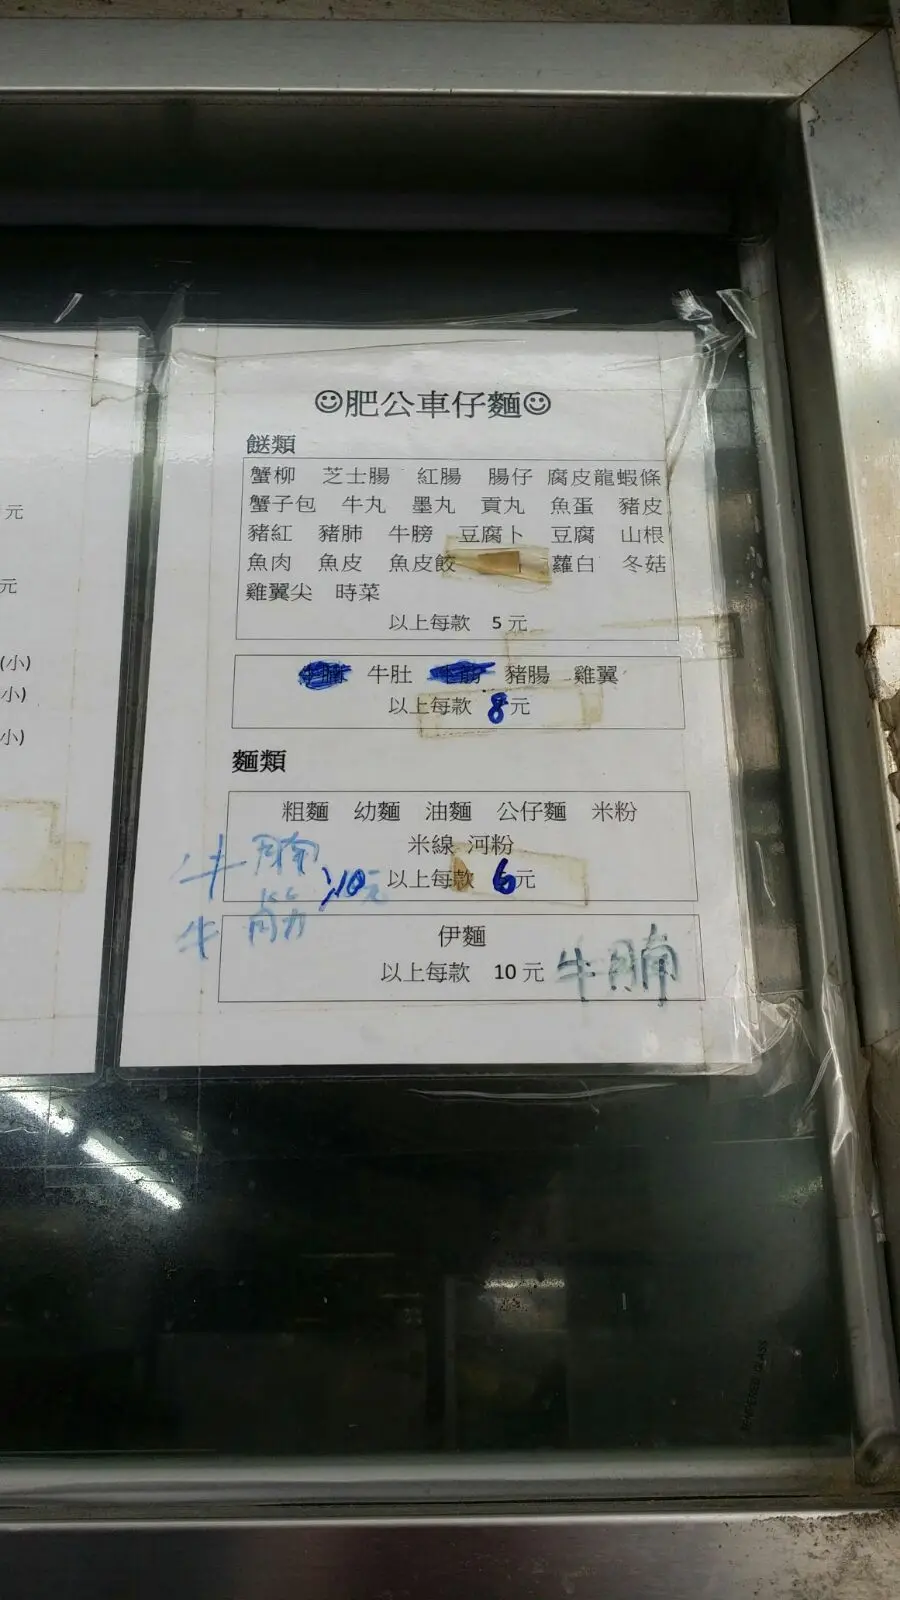 ☺肥公車仔麵☺
餸類
蟹柳 芝士腸 紅腸 腸仔 腐皮龍蝦條
蟹子包 牛丸 墨丸 貢丸 魚蛋 豬皮
豬紅 豬肺 牛膀 豆腐卜 豆腐 山根
魚肉 魚皮 魚皮餃 蘿白 冬菇
雞翼尖 時菜
以上每款 5 元
牛肚 豬腸 雞翼
以上每款 8元
麵類
粗麵 幼麵 油麵 公仔麵 米粉
米線 河粉
以上每款 6元
牛腩
牛筋
10元
伊麵
以上每款 10 元 牛腩
元
元
(小)
小)
小)
TEMPERED GLASS